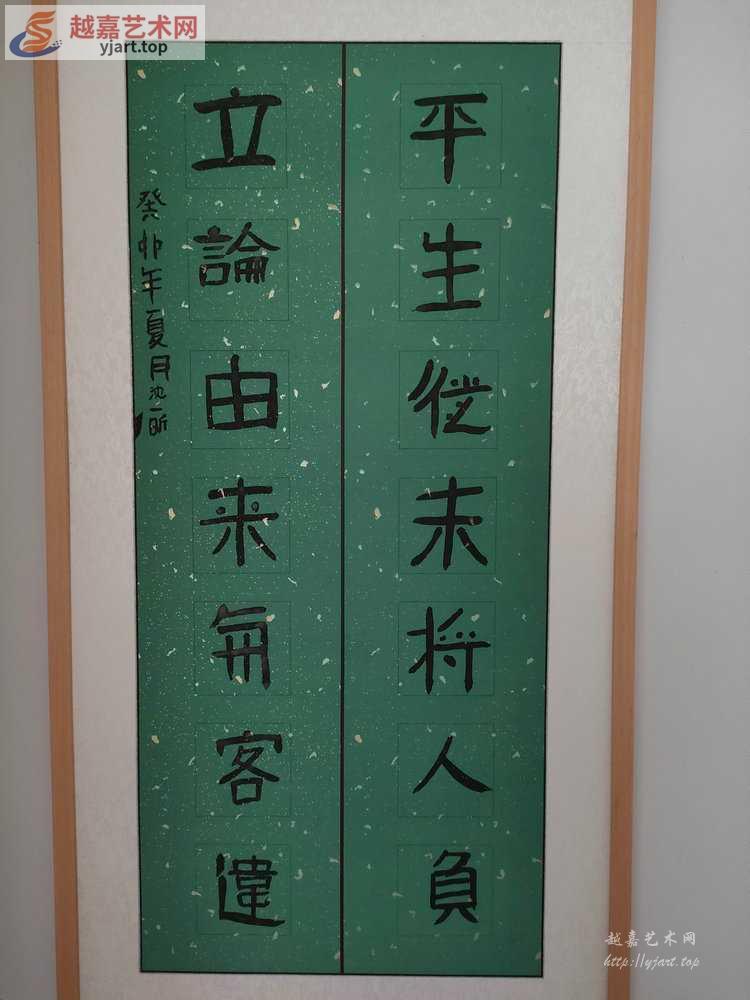 越嘉艺术网
yjart.top
平生從未将人負
立論由来每客違
癸卯年夏月沈一昕
越嘉艺术网
http://yjart.top